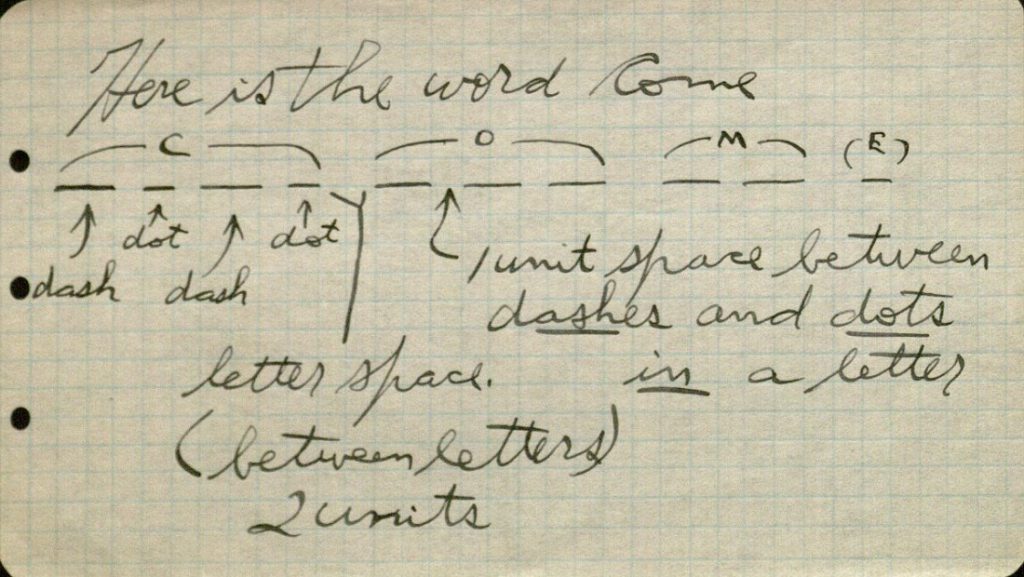 Here is the word Come
C O M (E)
dot dot
dash dash
1 unit space between
dashes and dots
in a letter
letter space.
(between letters)
2 units